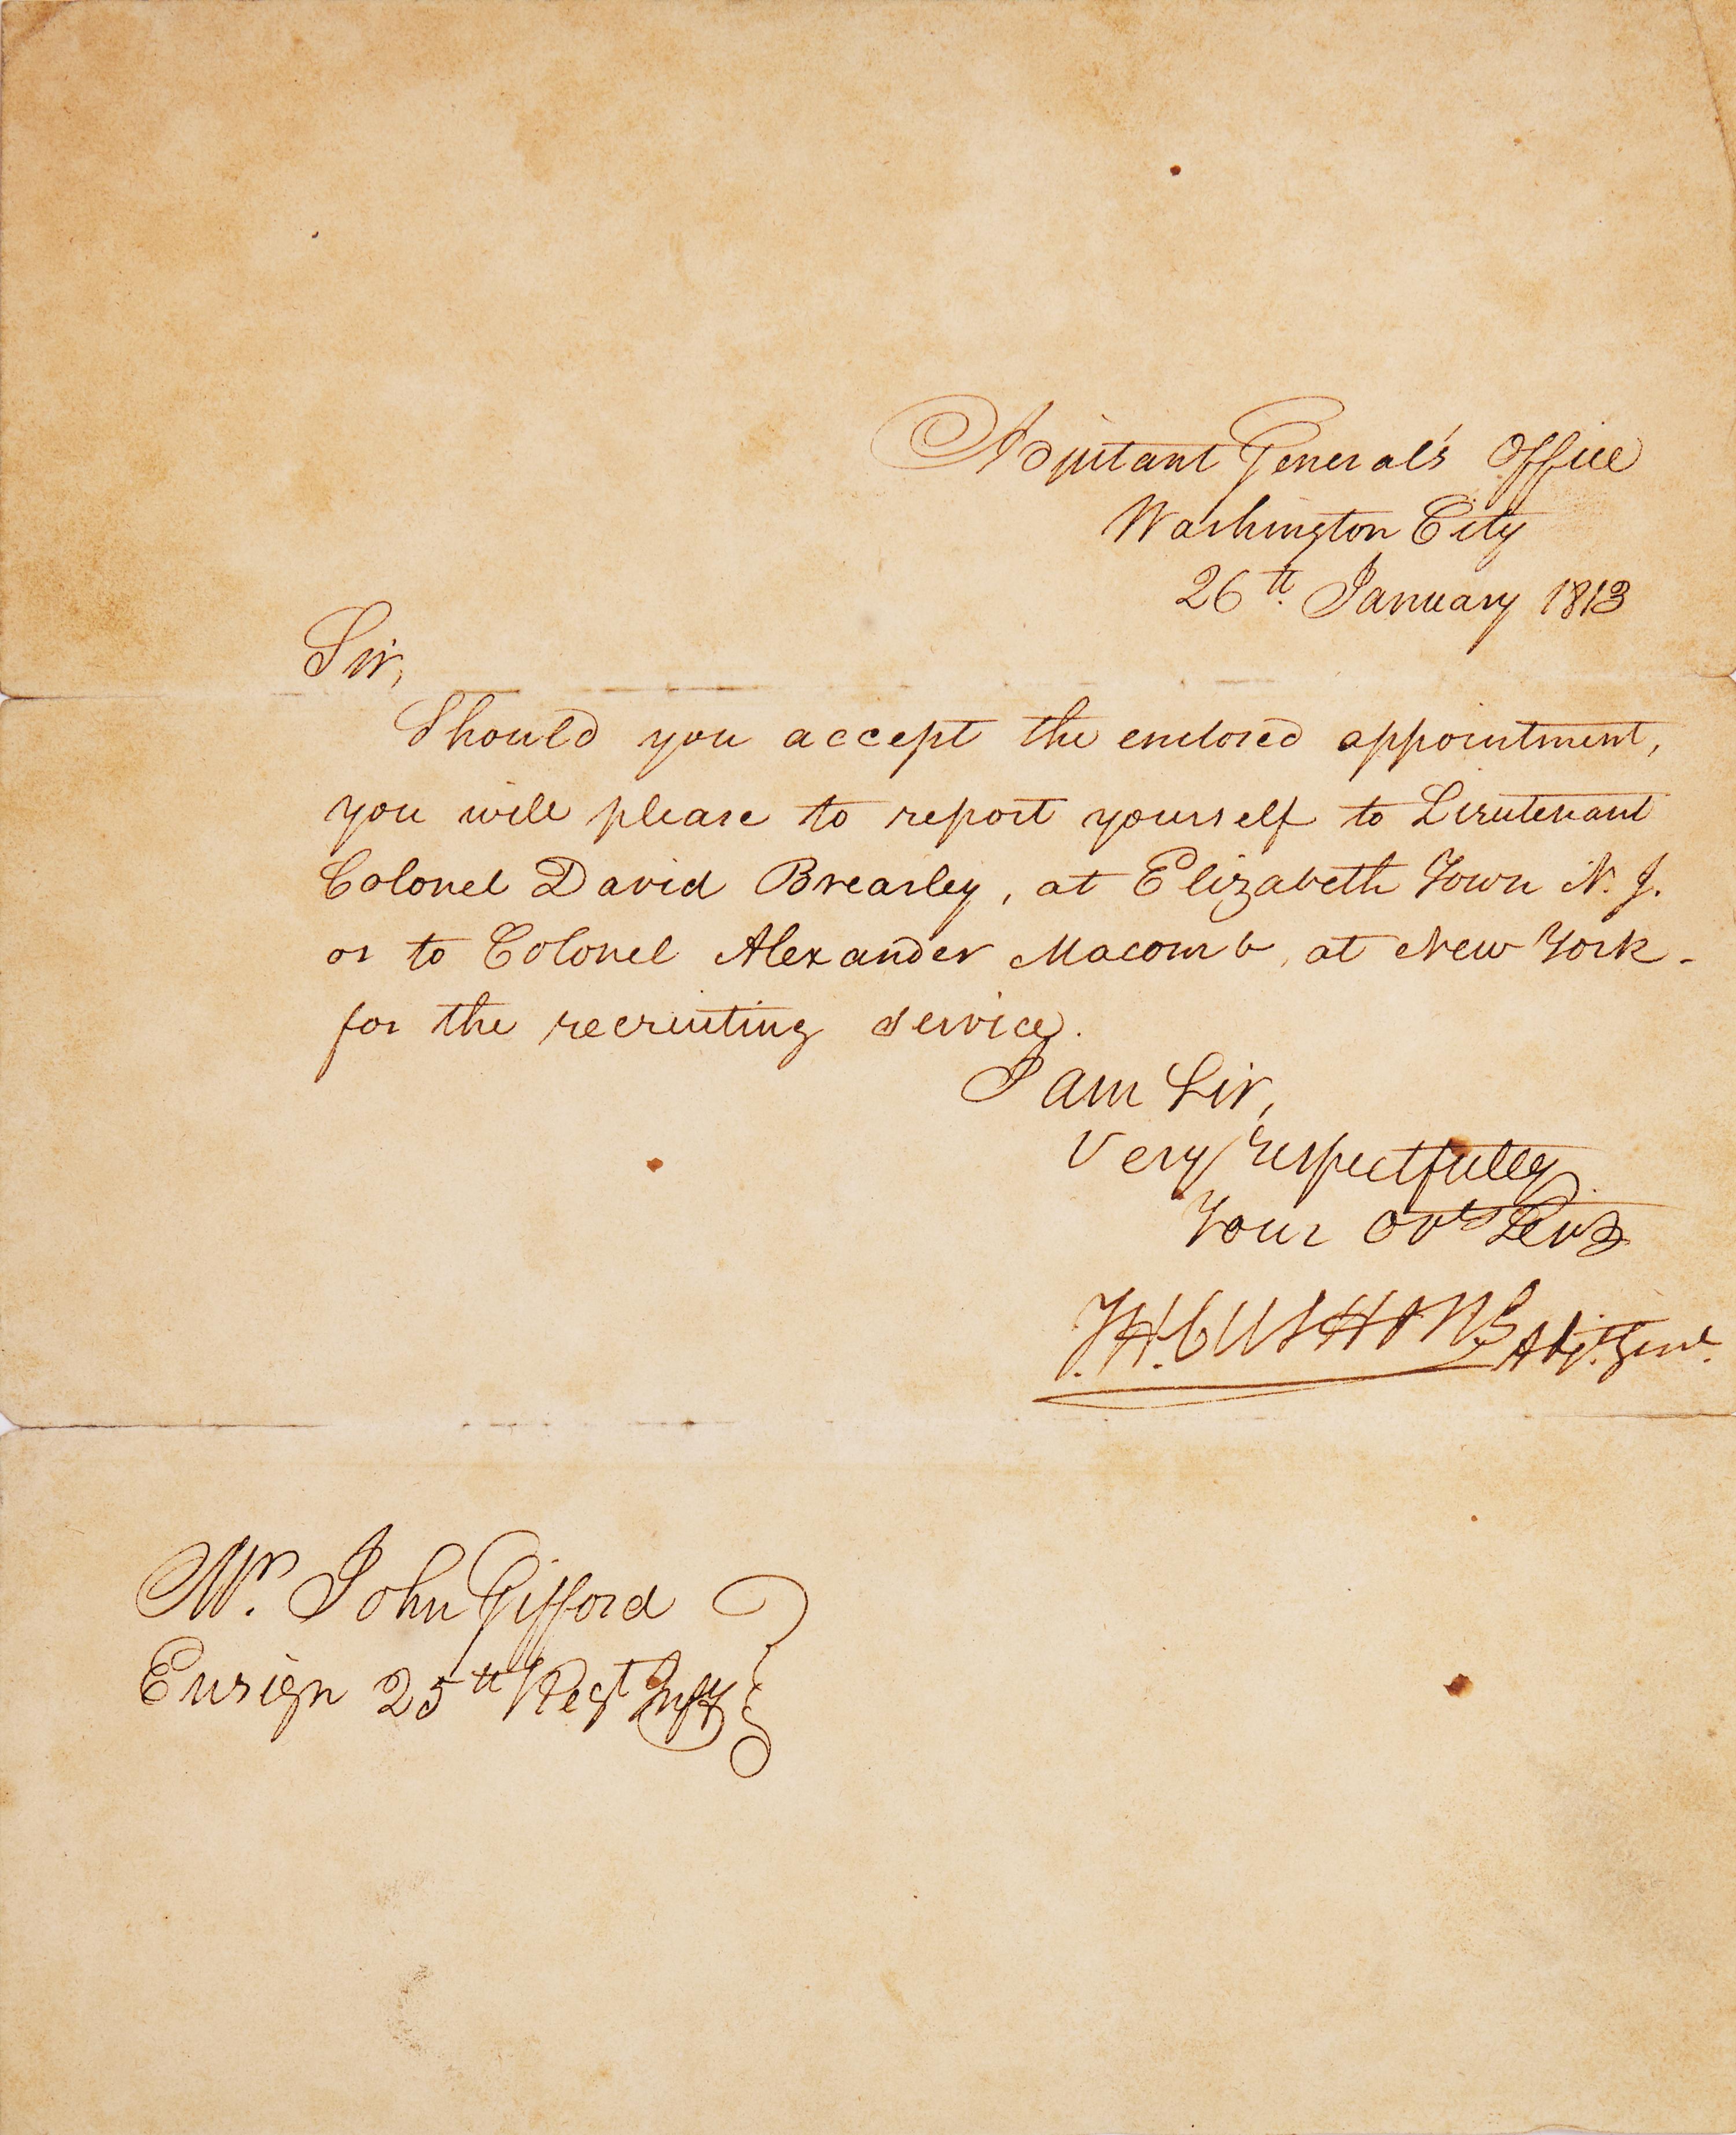 Adjutant General's Office
Washington City
26th. January 1813
Sir,
Should you accept the enclosed appointment,
you will please to report yourself to Lieutenant
Colonel David Brearley, at Elizabeth Town N. J.
or to Colonel Alexander Macomb, at New York -
for the recruiting service.
I am Sir,
Very respectfully
Your obt Servt
T.H. CUSHING Adj. Genl.
Mr. John Gifford
Ensign 25th Regt Infy